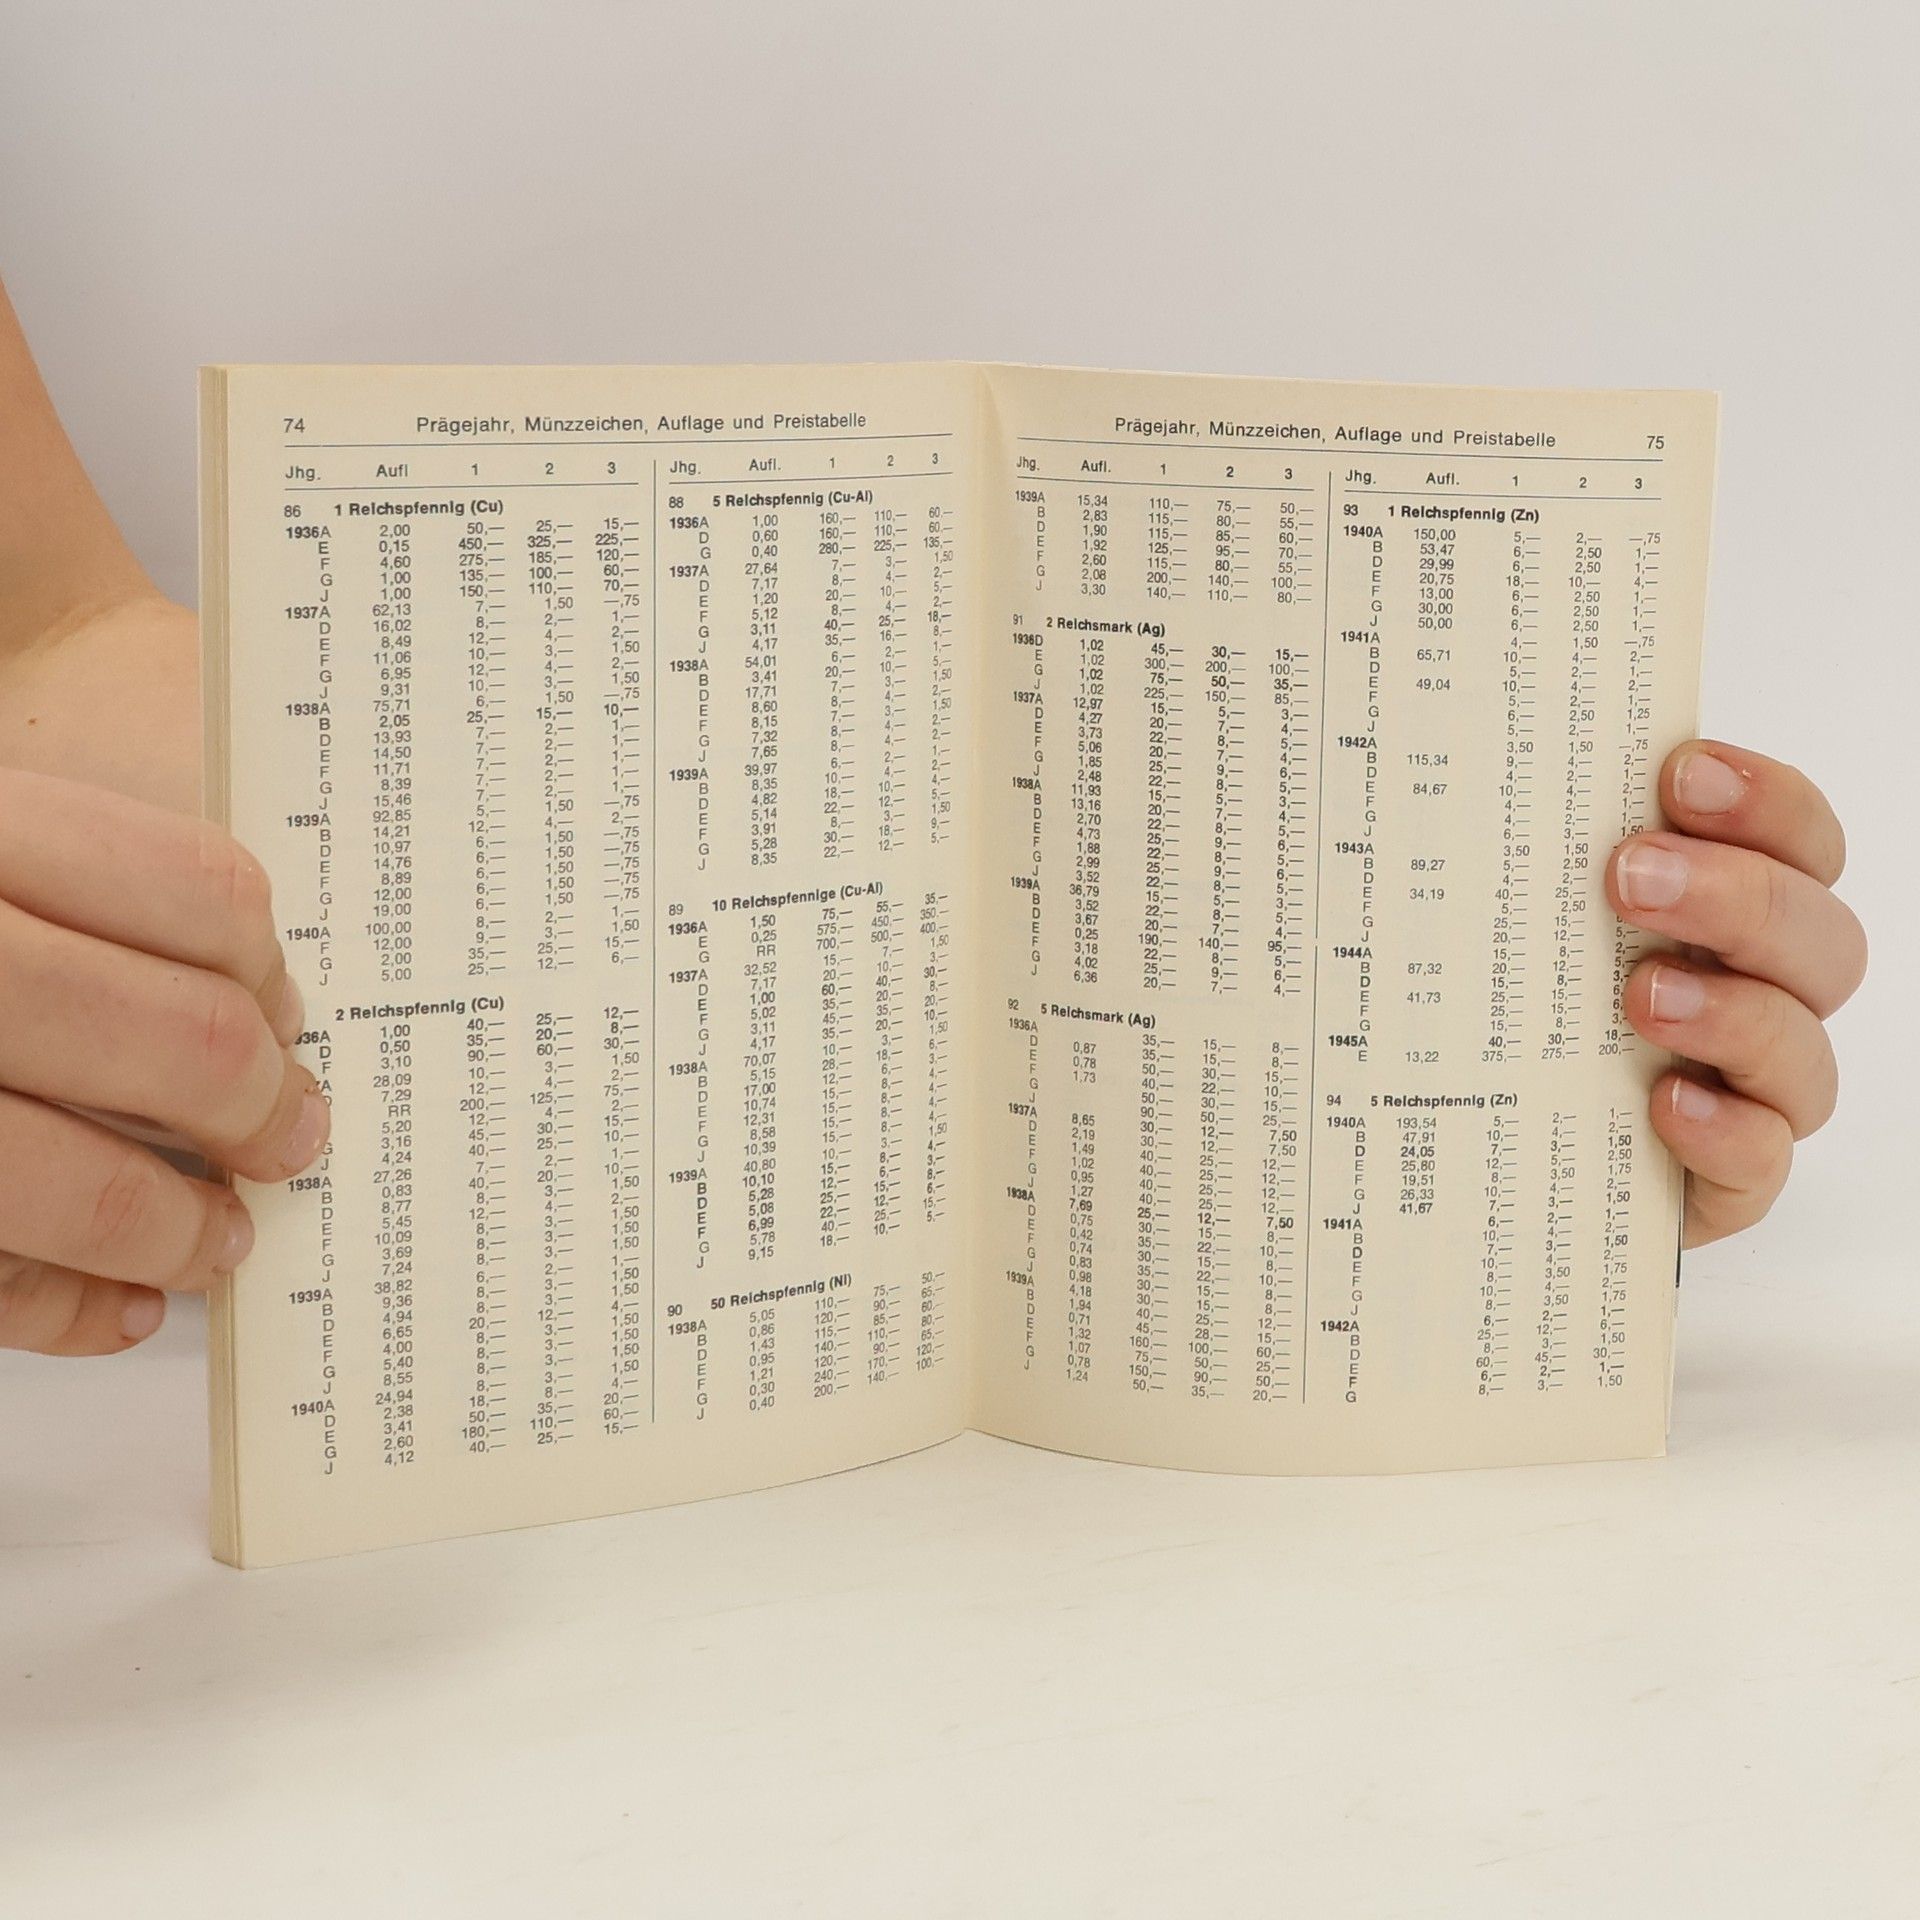 74 Prägejahr, Münzzeichen, Auflage und Preistabelle
Jhg. Aufl 1 2 3
86 1 Reichspfennig (Cu)
1936A 2,00 50,— 25,— 15,—
E 0,15 450,— 325,— 225,—
F 4,60 275,— 185,— 120,—
G 1,00 135,— 100,— 60,—
J 1,00 150,— 110,— 70,—
1937A 62,13 7,— 1,50 —,75
D 16,02 8,— 2,— 1,—
E 8,49 12,— 4,— 2,—
F 11,06 10,— 3,— 1,50
G 6,95 12,— 4,— 2,—
J 9,31 10,— 3,— 1,50
1938A 75,71 6,— 1,50 —,75
B 2,05 25,— 15,— 10,—
D 13,93 7,— 2,— 1,—
E 14,50 7,— 2,— 1,—
F 11,71 7,— 2,— 1,—
G 8,39 7,— 2,— 1,—
J 15,46 7,— 2,— 1,—
1939A 92,85 5,— 1,50 —,75
B 14,21 12,— 4,— 2,—
D 10,97 6,— 1,50 —,75
E 14,76 6,— 1,50 —,75
F 8,89 6,— 1,50 —,75
G 12,00 6,— 1,50 —,75
J 19,00 6,— 1,50 —,75
1940A 100,00 8,— 2,— 1,—
F 12,00 9,— 3,— 1,50
G 2,00 35,— 25,— 15,—
J 5,00 25,— 12,— 6,—
2 Reichspfennig (Cu)
36A 1,00 40,— 25,— 12,—
D 0,50 35,— 20,— 8,—
F 3,10 90,— 60,— 30,—
A 28,09 10,— 3,— 1,50
7,29 12,— 4,— 2,—
RR 200,— 125,— 75,—
5,20 12,— 4,— 2,—
G 3,16 45,— 30,— 15,—
J 4,24 40,— 25,— 10,—
1938A 27,26 7,— 2,— 1,—
B 0,83 40,— 20,— 10,—
D 8,77 8,— 3,— 1,50
E 5,45 12,— 4,— 2,—
F 10,09 8,— 3,— 1,50
G 3,69 8,— 3,— 1,50
J 7,24 8,— 3,— 1,50
1939A 38,82 6,— 2,— 1,—
B 9,36 8,— 3,— 1,50
D 4,94 8,— 3,— 1,50
E 6,65 20,— 12,— 4,—
F 4,00 8,— 3,— 1,50
G 5,40 8,— 3,— 1,50
J 8,55 8,— 3,— 1,50
1940A 24,94 8,— 3,— 1,50
D 2,38 18,— 8,— 4,—
E 3,41 50,— 35,— 20,—
G 2,60 180,— 110,— 60,—
J 4,12 40,— 25,— 15,—
Jhg. Aufl. 1 2 3
88 5 Reichspfennig (Cu-Al)
1936A 1,00 160,— 110,— 60,—
D 0,60 160,— 110,— 60,—
G 0,40 280,— 225,— 135,—
1937A 27,64 7,— 3,— 1,50
D 7,17 8,— 4,— 2,—
E 1,20 20,— 10,— 5,—
F 5,12 8,— 4,— 2,—
G 3,11 40,— 25,— 18,—
J 4,17 35,— 16,— 8,—
1938A 54,01 6,— 2,— 1,—
B 3,41 20,— 10,— 5,—
D 17,71 7,— 3,— 1,50
E 8,60 8,— 4,— 2,—
F 8,15 7,— 3,— 1,50
G 7,32 8,— 4,— 2,—
J 7,65 8,— 4,— 2,—
1939A 39,97 6,— 2,— 1,—
B 8,35 10,— 4,— 2,—
D 4,82 18,— 10,— 4,—
E 5,14 22,— 12,— 5,—
F 3,91 8,— 3,— 1,50
G 5,28 30,— 18,— 9,—
J 8,35 22,— 12,— 5,—
89 10 Reichspfennige (Cu-Al)
1936A 1,50 75,— 55,— 35,—
E 0,25 575,— 450,— 350,—
G RR 700,— 500,— 400,—
1937A 32,52 15,— 7,— 1,50
D 7,17 20,— 10,— 3,—
E 1,00 60,— 40,— 30,—
F 5,02 35,— 20,— 8,—
G 3,11 45,— 35,— 20,—
J 4,17 35,— 20,— 10,—
1938A 70,07 10,— 3,— 1,50
B 5,15 28,— 18,— 6,—
D 17,00 12,— 6,— 3,—
E 10,74 15,— 8,— 4,—
F 12,31 15,— 8,— 4,—
G 8,58 15,— 8,— 4,—
J 10,39 15,— 8,— 4,—
1939A 40,80 10,— 1,50
B 10,10 15,— 8,— 4,—
D 5,28 12,— 6,— 3,—
E 5,08 25,— 15,— 8,—
F 6,99 22,— 12,— 6,—
G 5,78 40,— 25,— 15,—
J 9,15 18,— 10,— 5,—
90 50 Reichspfennig (Ni)
1938A 5,05 110,— 75,— 50,—
B 0,86 120,— 90,— 65,—
D 1,43 115,— 85,— 60,—
E 0,95 140,— 110,— 80,—
F 1,21 120,— 90,— 65,—
G 0,30 240,— 170,— 120,—
J 0,40 200,— 140,— 100,—
Prägejahr, Münzzeichen, Auflage und Preistabelle 75
Jhg. Aufl. 1 2 3
1939A 15,34 110,— 75,— 50,—
B 2,83 115,— 80,— 55,—
D 1,90 115,— 85,— 60,—
E 1,92 125,— 95,— 70,—
F 2,60 115,— 80,— 55,—
G 2,08 200,— 140,— 100,—
J 3,30 140,— 110,— 80,—
91 2 Reichsmark (Ag)
1936D 1,02 45,— 30,— 15,—
E 1,02 300,— 200,— 100,—
G 1,02 75,— 50,— 35,—
J 1,02 225,— 150,— 85,—
1937A 12,97 15,— 5,— 3,—
D 4,27 20,— 7,— 4,—
E 3,73 22,— 8,— 5,—
F 5,06 20,— 7,— 4,—
G 1,85 25,— 9,— 6,—
J 2,48 22,— 8,— 5,—
1938A 11,93 15,— 5,— 3,—
B 13,16 20,— 7,— 4,—
D 2,70 22,— 8,— 5,—
E 4,73 25,— 9,— 6,—
F 1,88 22,— 8,— 5,—
G 2,99 25,— 9,— 6,—
J 3,52 22,— 8,— 5,—
1939A 36,79 15,— 5,— 3,—
B 3,52 22,— 8,— 5,—
D 3,67 20,— 7,— 4,—
E 0,25 190,— 140,— 95,—
F 3,18 22,— 8,— 5,—
G 4,02 25,— 9,— 6,—
J 6,36 20,— 7,— 4,—
92 5 Reichsmark (Ag)
1936A 35,— 15,— 8,—
D 0,87 35,— 15,— 8,—
E 0,78 50,— 30,— 15,—
F 1,73 40,— 22,— 10,—
G 50,— 30,— 15,—
J 90,— 50,— 25,—
1937A 8,65 30,— 12,— 7,50
D 2,19 30,— 12,— 7,50
E 1,49 40,— 25,— 12,—
F 1,02 40,— 25,— 12,—
G 0,95 40,— 25,— 12,—
J 1,27 40,— 25,— 12,—
1938A 7,69 25,— 12,— 7,50
D 0,75 30,— 15,— 8,—
E 0,42 35,— 22,— 10,—
F 0,74 30,— 15,— 8,—
G 0,83 35,— 22,— 10,—
J 0,98 30,— 15,— 8,—
1939A 4,18 30,— 15,— 8,—
B 1,94 40,— 25,— 12,—
D 0,71 45,— 28,— 15,—
E 1,32 160,— 100,— 60,—
F 1,07 75,— 50,— 25,—
G 0,78 150,— 90,— 50,—
J 1,24 50,— 35,— 20,—
Jhg. Aufl. 1 2 3
93 1 Reichspfennig (Zn)
1940A 150,00 5,— 2,— —,75
B 53,47 6,— 2,50 1,—
D 29,99 6,— 2,50 1,—
E 20,75 18,— 10,— 4,—
F 13,00 6,— 2,50 1,—
G 30,00 6,— 2,50 1,—
J 50,00 6,— 2,50 1,—
1941A 4,— 1,50 —,75
B 65,71 10,— 4,— 2,—
D 5,— 2,— 1,—
E 49,04 10,— 4,— 2,—
F 5,— 2,— 1,—
G 6,— 2,50 1,25
J 5,— 2,— 1,—
1942A 3,50 1,50 —,75
B 115,34 9,— 4,— 2,—
D 4,— 2,— 1,—
E 84,67 10,— 4,— 2,—
F 4,— 2,— 1,—
G 4,— 2,— 1,—
J 6,— 3,— 1,50
1943A 3,50 1,50
B 89,27 5,— 2,50
D 4,— 2,—
E 34,19 40,— 25,—
F 5,— 2,50
G 25,— 15,—
J 20,— 12,— 5,—
1944A 15,— 8,— 2,—
B 87,32 20,— 12,— 5,—
D 15,— 8,— 3,—
E 41,73 25,— 15,— 6,
F 25,— 15,— 6,
G 15,— 8,— 3,—
1945A 40,— 30,— 18,—
E 13,22 375,— 275,— 200,—
94 5 Reichspfennig (Zn)
1940A 193,54 5,— 2,— 1,—
B 47,91 10,— 4,— 2,—
D 24,05 7,— 3,— 1,50
E 25,80 12,— 5,— 2,50
F 19,51 8,— 3,50 1,75
G 26,33 10,— 4,— 2,—
J 41,67 7,— 3,— 1,50
1941A 6,— 2,— 1,—
B 10,— 4,— 2,—
D 7,— 3,— 1,50
E 10,— 4,— 2,—
F 8,— 3,50 1,75
G 10,— 4,— 2,—
J 8,— 3,50 1,75
1942A 6,— 2,— 1,—
B 25,— 12,— 6,—
D 8,— 3,— 1,50
E 60,— 45,— 30,—
F 6,— 2,— 1,—
G 8,— 3,— 1,50